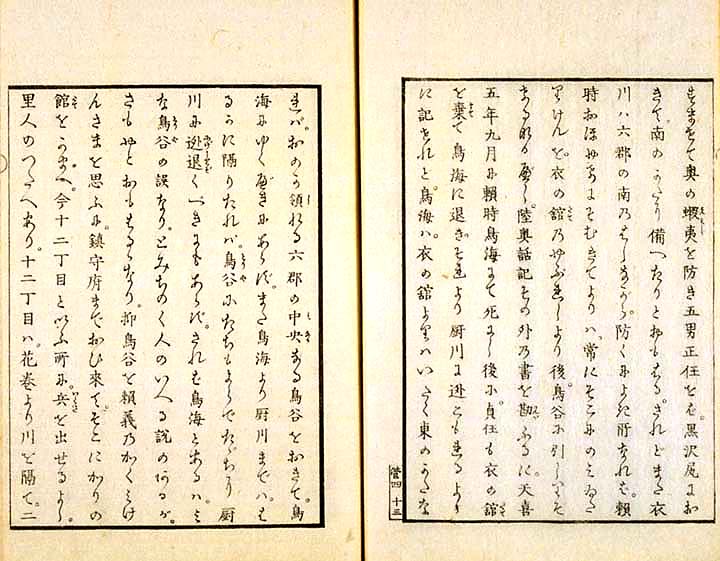 奥の蝦夷を防き五男正任をば。黒沢尻にお
きて。南のかたより備へたりとおもはる。されどまた衣
川ハ六郡の南乃はしながら。防くによき所なれば。頼
時おほやけにそむきてよりハ。常にそこにのミゐた
りけんを。衣の舘乃やぶれしより後。鳥谷に引
なるべし。陸奥話記その外乃書を勘ふるに。天喜
五年九月に頼時鳥海にて死し後に。貞任も衣の舘
を棄て鳥海に退きそれより厨川に逃こもれるよし
に記されど。鳥海ハ。衣の舘よりハいたく東のかたな
管四 十三
れば。おのが領れる六郡の中央なる鳥谷をおきて。鳥
海にゆくべきにあらず。また鳥海より厨川までハ。は
るかに隔りたれば。鳥谷にたちもよらでたゞちに厨
川に迯退くべきにもあらず。されば鳥海とあるハ。ミ
な鳥谷の誤なり。とみちのく人のいへる説のあるが。
さもやとおもはるゝなり。抑鳥谷を頼義乃かくミけ
んさまを思ふに。鎮守府までおひ来て。そこにかりの
舘をかまへ。今十二丁目といふ所に。兵を出せるよし。
里人のつたへあり。十二丁目ハ。花巻より川を隔て。二